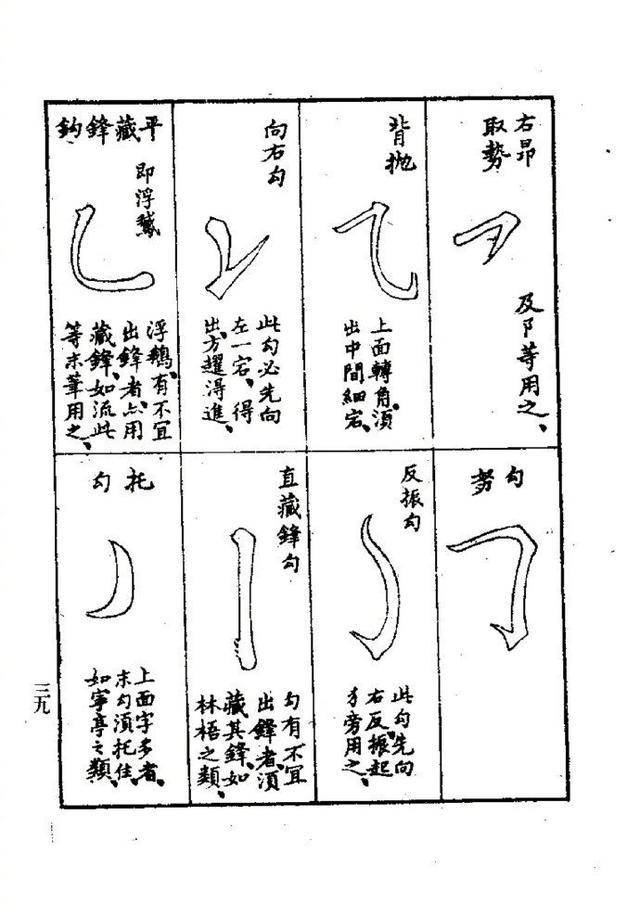 右昂
取勢
及阝等用之、
背抛
上面轉角、須
出中間細宕、
向右勾
此勾必先向
左一宕、得
出、方趯得進、
平藏鋒鈎
即浮鵞
浮鵝、有不宜
出鋒者、亦用
藏鋒、如流此
等末筆用之、
勾努
反振勾
此勾、先向
右反振起
犭旁用之、
直藏鋒勾
勾有不宜
出鋒者、須
藏其鋒、如
林梧之類、
托勾
上面字多者、
末勾須托住、
如寧亭之類、
三九